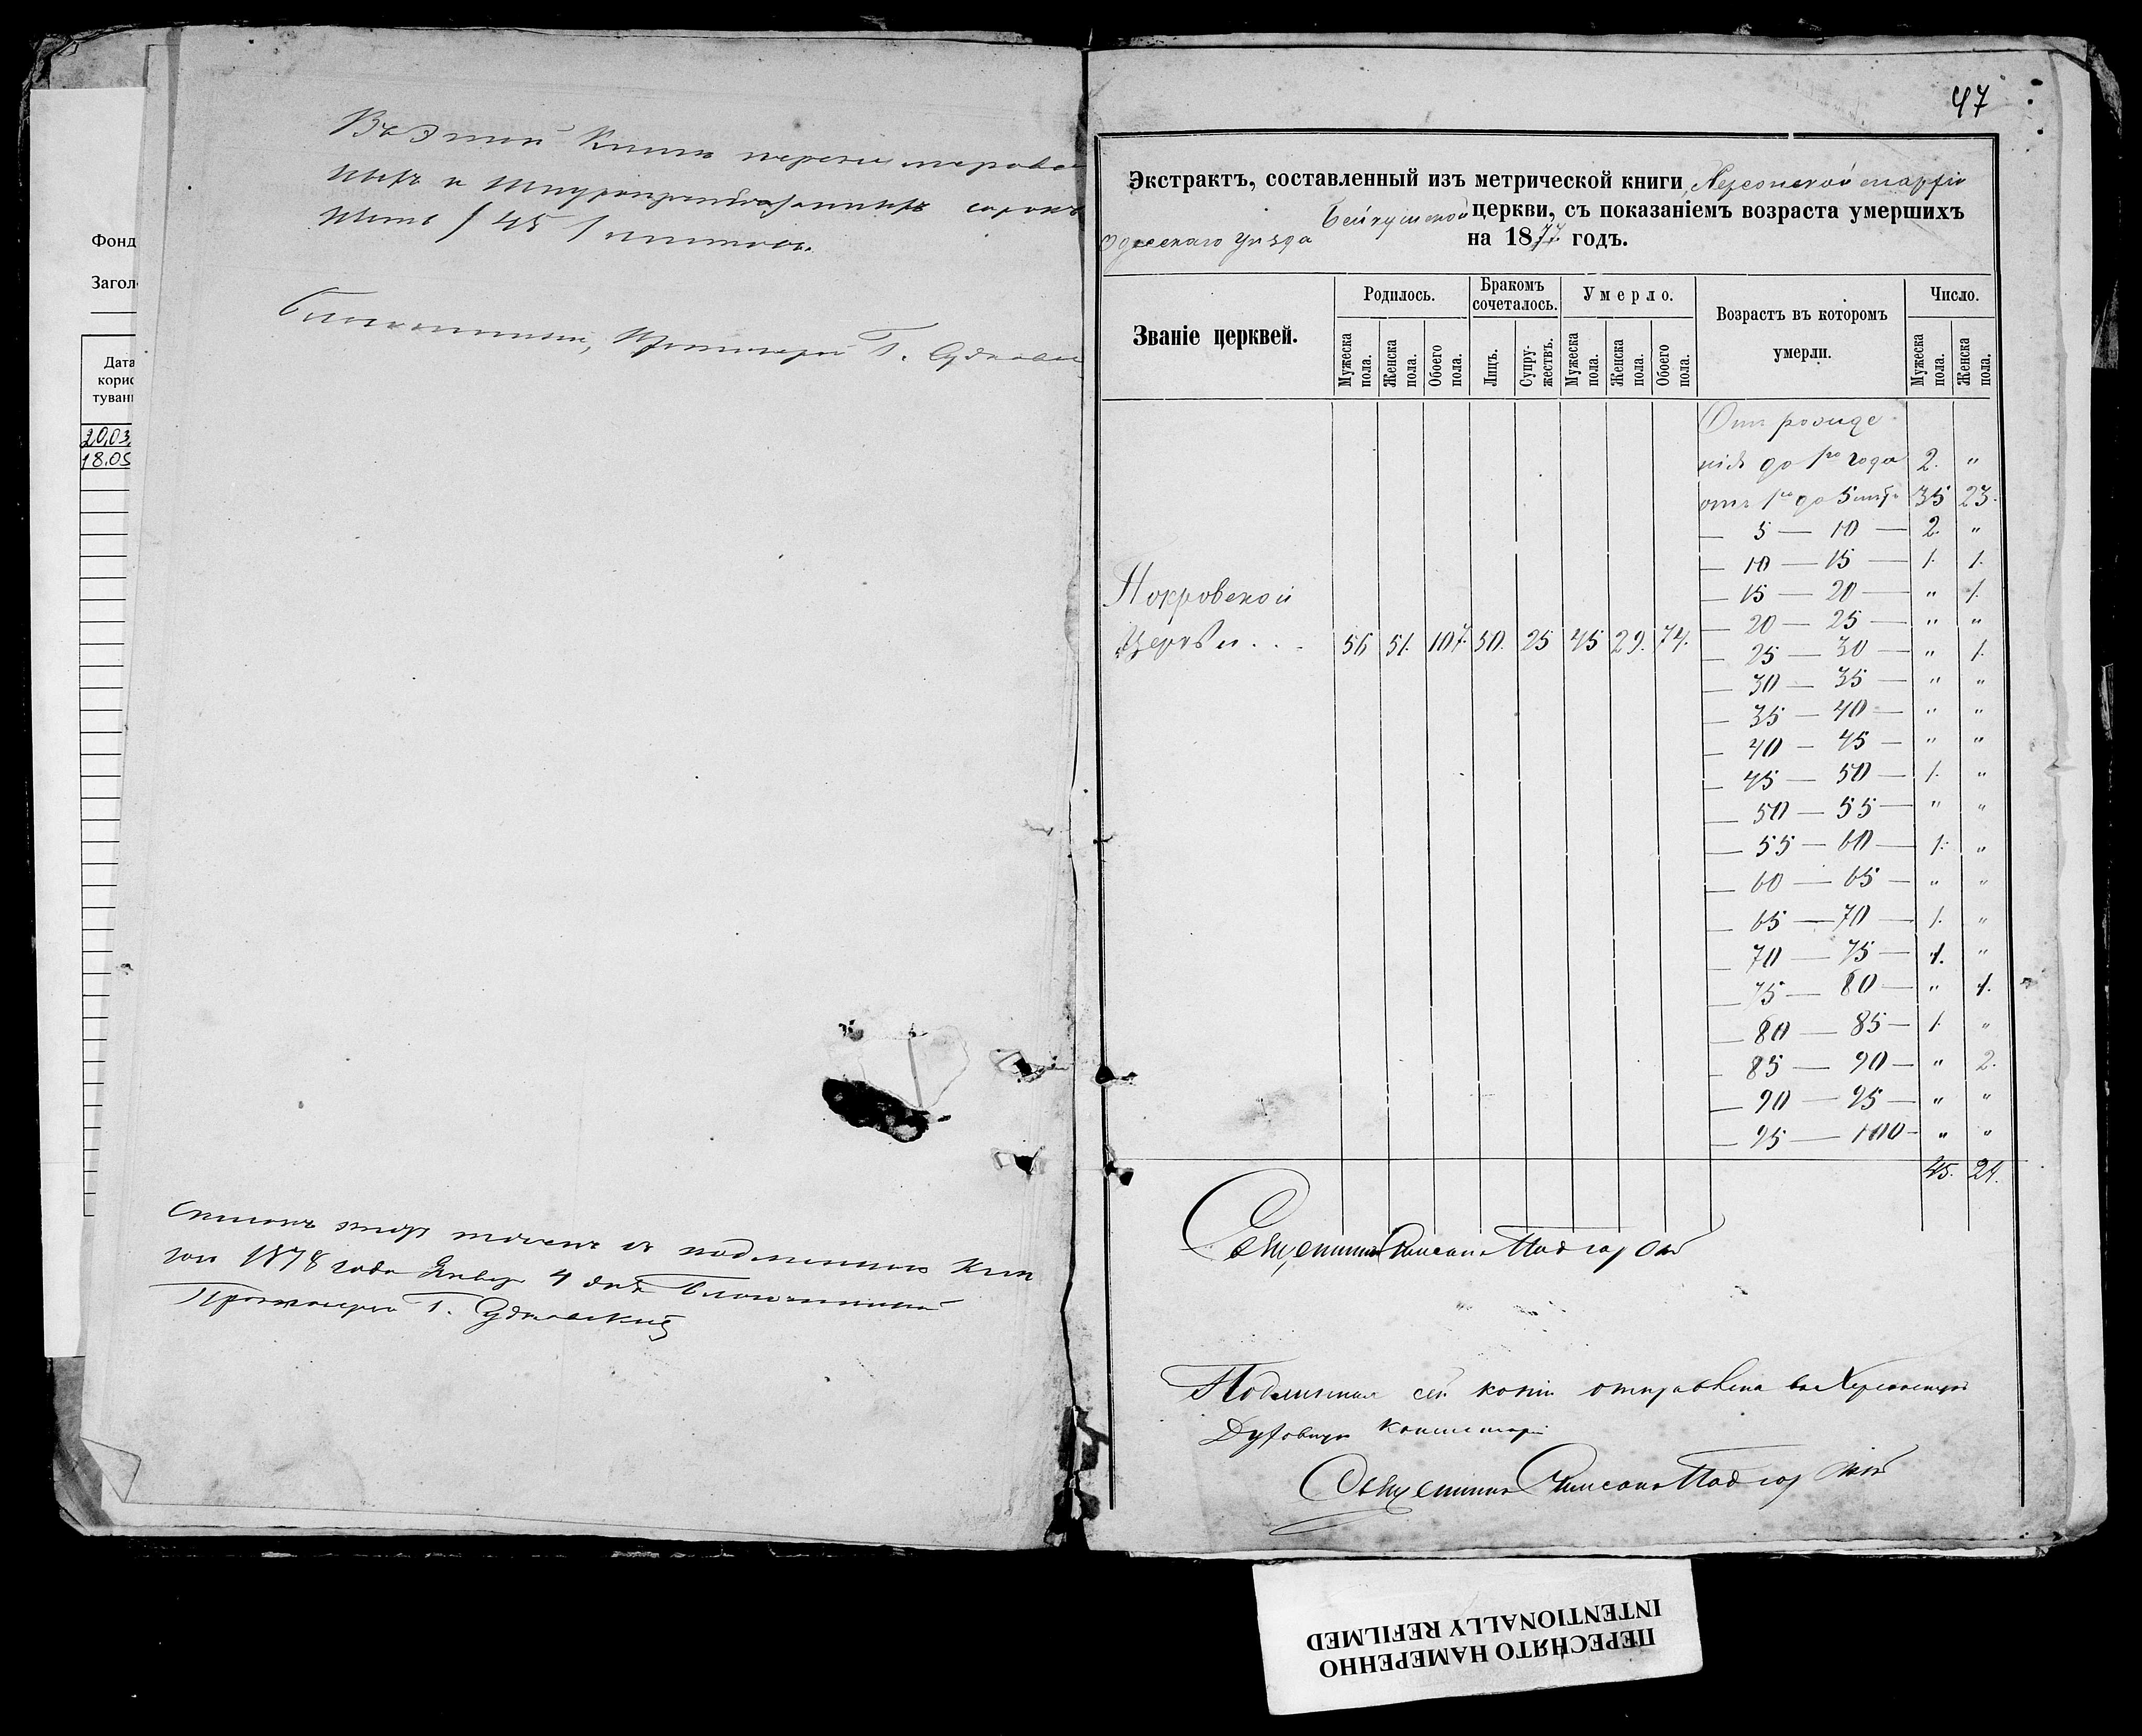 Фонд
Загол
Дата
корис
туван
20.03.
18.05
Въ этой Книге перенумерован
ныхъ и шнурапрошнурованныхъ сорокъ
пять / 45 / листовъ.
Благочинный, Протоиерей Г. Судков
Списокъ этотъ точенъ съ подлинною Кни
гою 1878 года Января 4 дня Благочинный
Протоиерей Г. Судковский
47
Экстрактъ, составленный изъ метрической книги Херсонской епархіи
Одесскаго уѣзда Бейкушской церкви, съ показаніемъ возраста умершихъ
на 1877 годъ.
Званіе церквей.
Родилось.
Бракомъ сочеталось.
Умерло.
Возрастъ въ которомъ умерли.
Число.
Мужеска пола.
Женска пола.
Обоего пола.
Лицъ.
Супружествъ.
Мужеска пола.
Женска пола.
Обоего пола.
Мужеска пола.
Женска пола.
Отъ рожде
нія до 1го года 2. "
отъ 1го до 5 35 23.
— 5 — 10 — 2. "
— 10 — 15 — 1. 1.
Покровской
— 15 — 20 — " 1.
— 20 — 25 — " "
Церкви . . . 56 51. 107. 50. 25 45 29. 74.
— 25 — 30 — " 1.
— 30 — 35 — " "
— 35 — 40 — " "
— 40 — 45 — " "
— 45 — 50 — 1. "
— 50 — 55 — " "
— 55 — 60 — 1. "
— 60 — 65 — " "
— 65 — 70 — 1. "
— 70 — 75 — 1. "
— 75 — 80 — " 1.
— 80 — 85 — 1. "
— 85 — 90 — " 2.
— 90 — 95 — " "
— 95 — 100 — " "
45. 29.
Священникъ Симеонъ
Подлинная сей копіи отправлена въ Херсонскую
Духовную Консисторію
Священникъ Симеонъ
ПЕРЕСНЯТО НАМЕРЕННО
INTENTIONALLY REFILMED